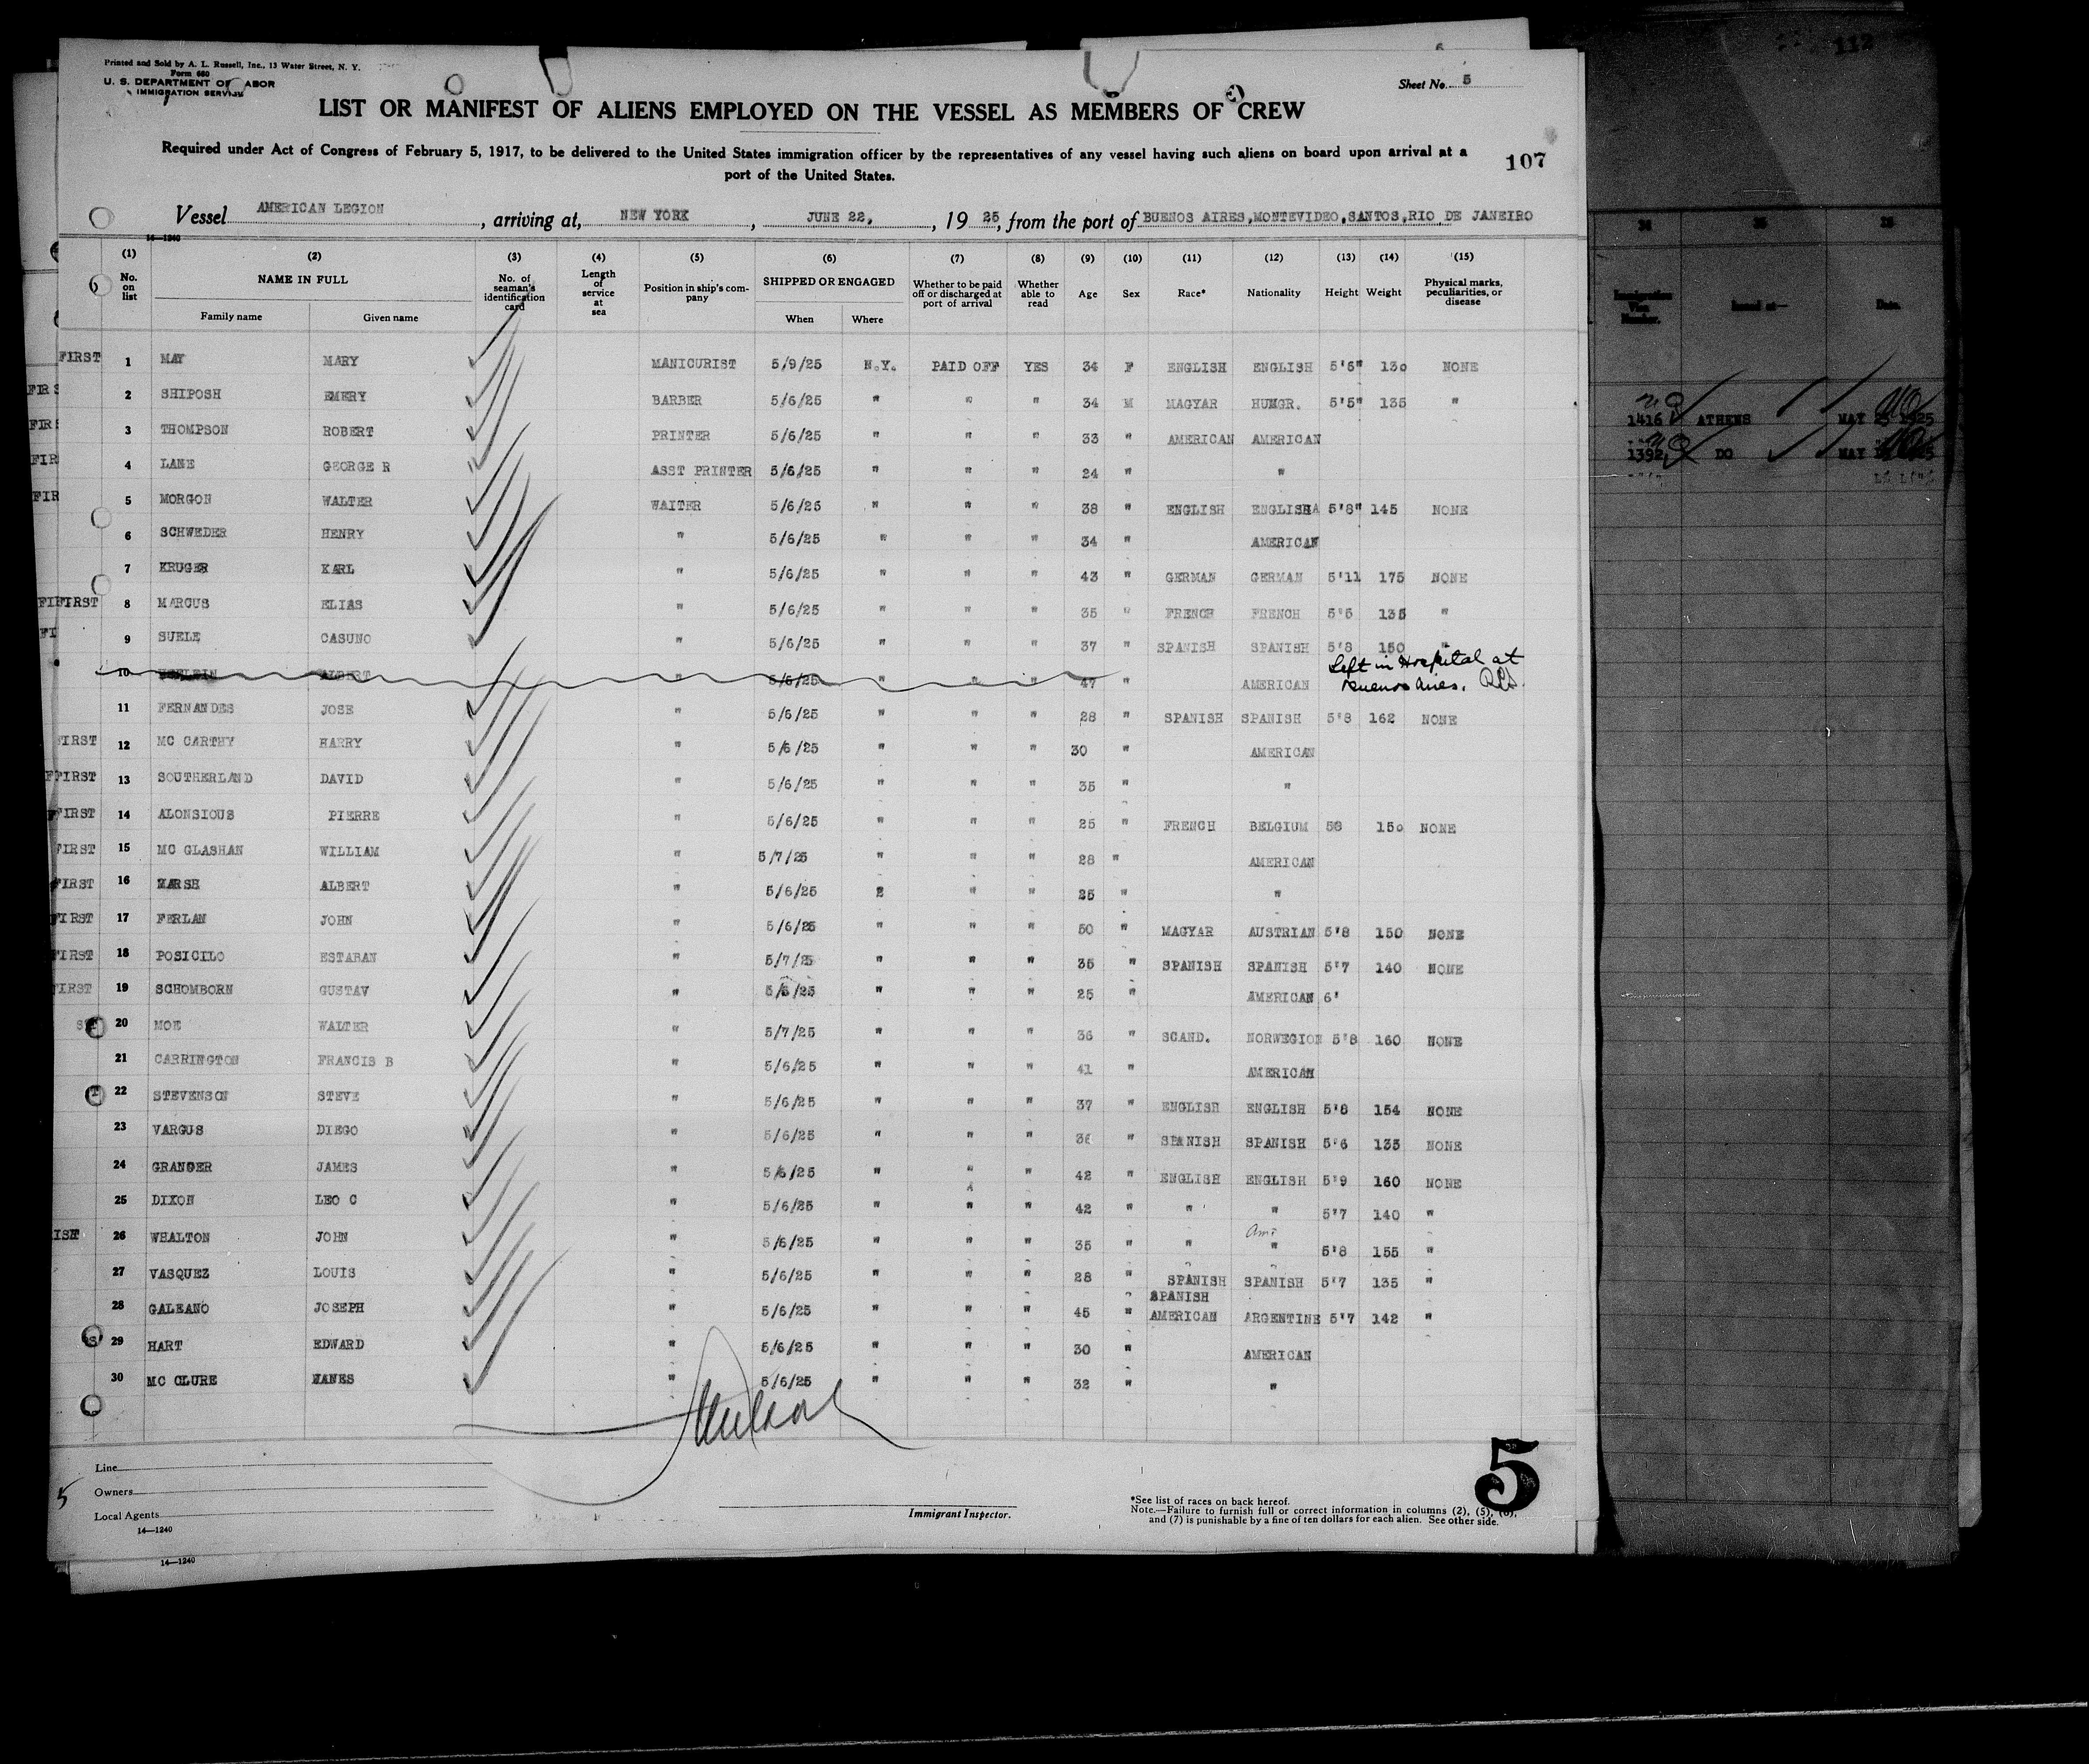 Printed and Sold by A. L. Russell, Inc., 13 Water Street, N. Y.
Form 680
U. S. DEPARTMENT OF LABOR
IMMIGRATION SERVICE
Sheet No. 5
LIST OR MANIFEST OF ALIENS EMPLOYED ON THE VESSEL AS MEMBERS OF CREW
Required under Act of Congress of February 5, 1917, to be delivered to the United States immigration officer by the representatives of any vessel having such aliens on board upon arrival at a
port of the United States.
107
Vessel AMERICAN LEGION, arriving at, NEW YORK, JUNE 22, 1925, from the port of BUENOS AIRES,MONTEVIDEO,SANTOS,RIO DE JANEIRO
14—1240
(1) (2) (3) (4) (5) (6) (7) (8) (9) (10) (11) (12) (13) (14) (15)
No. on list NAME IN FULL Family name Given name No. of seaman's identification card Length of service at sea Position in ship's company SHIPPED OR ENGAGED When Where Whether to be paid off or discharged at port of arrival Whether able to read Age Sex Race* Nationality Height Weight Physical marks, peculiarities, or disease
FIRST 1 MAY MARY MANICURIST 5/9/25 N.Y. PAID OFF YES 34 F ENGLISH ENGLISH 5'6" 130 NONE
2 SHIPOSH EMERY BARBER 5/6/25 " " " 34 M MAGYAR HUNGR. 5'5" 135 "
3 THOMPSON ROBERT PRINTER 5/6/25 " " " 33 " AMERICAN AMERICAN
4 LANE GEORGE R ASST PRINTER 5/6/25 " " " 24 " "
5 MORGON WALTER WAITER 5/6/25 " " " 38 " ENGLISH ENGLISH 5'8" 145 NONE
6 SCHWEDER HENRY " 5/6/25 " " " 34 " AMERICAN
7 KRUGER KARL " 5/6/25 " " " 43 " GERMAN GERMAN 5'11 175 NONE
FIRST 8 MARCUS ELIAS " 5/6/25 " " " 35 " FRENCH FRENCH 5'5 135 "
9 SUELE CASUNO " 5/6/25 " " " 37 " SPANISH SPANISH 5'8 150 "
10 ALBERT " 5/6/25 " " " 47 " AMERICAN Left in Hospital at
Buenos Aires.
11 FERNANDES JOSE " 5/6/25 " " " 28 " SPANISH SPANISH 5'8 162 NONE
FIRST 12 MC CARTHY HARRY " 5/6/25 " " " 30 " AMERICAN
FIRST 13 SOUTHERLAND DAVID " 5/6/25 " " " 35 " "
FIRST 14 ALONSIOUS PIERRE " 5/6/25 " " " 25 " FRENCH BELGIUM 58 150 NONE
FIRST 15 MC GLASHAN WILLIAM " 5/7/25 " " " 28 " AMERICAN
FIRST 16 MARSH ALBERT " 5/6/25 " " " 25 " "
FIRST 17 FERLAN JOHN " 5/6/25 " " " 50 " MAGYAR AUSTRIAN 5'8 150 NONE
FIRST 18 POSICILO ESTABAN " 5/7/25 " " " 35 " SPANISH SPANISH 5'7 140 NONE
FIRST 19 SCHOMBORN GUSTAV " 5/6/25 " " " 25 " AMERICAN 6'
20 MOE WALTER " 5/7/25 " " " 36 " SCAND. NORWEGION 5'8 160 NONE
21 CARRINGTON FRANCIS B " 5/6/25 " " " 41 " AMERICAN
22 STEVENSON STEVE " 5/6/25 " " " 37 " ENGLISH ENGLISH 5'8 154 NONE
23 VARGUS DIEGO " 5/6/25 " " " 36 " SPANISH SPANISH 5'6 135 NONE
24 GRANGER JAMES " 5/6/25 " " " 42 " ENGLISH ENGLISH 5'9 160 NONE
25 DIXON LEO C " 5/6/25 " " " 42 " " " 5'7 140 "
26 WHALTON JOHN " 5/6/25 " " " 35 " " Am. " 5'8 155 "
27 VASQUEZ LOUIS " 5/6/25 " " " 28 " SPANISH SPANISH 5'7 135 "
28 GALEANO JOSEPH " 5/6/25 " " " 45 " SPANISH AMERICAN ARGENTINE 5'7 142 "
29 HART EDWARD " 5/6/25 " " " 30 " AMERICAN
30 MC CLURE " 5/6/25 " " " 32 " "
Line
Owners
Local Agents
14—1240
14—1240
Immigrant Inspector.
*See list of races on back hereof.
Note.—Failure to furnish full or correct information in columns (2), (5), (6),
and (7) is punishable by a fine of ten dollars for each alien. See other side.
5
5
112
Immigration Visa Number. Issued at— Date.
1416 ATHENS MAY 1925
1392 DO MAY